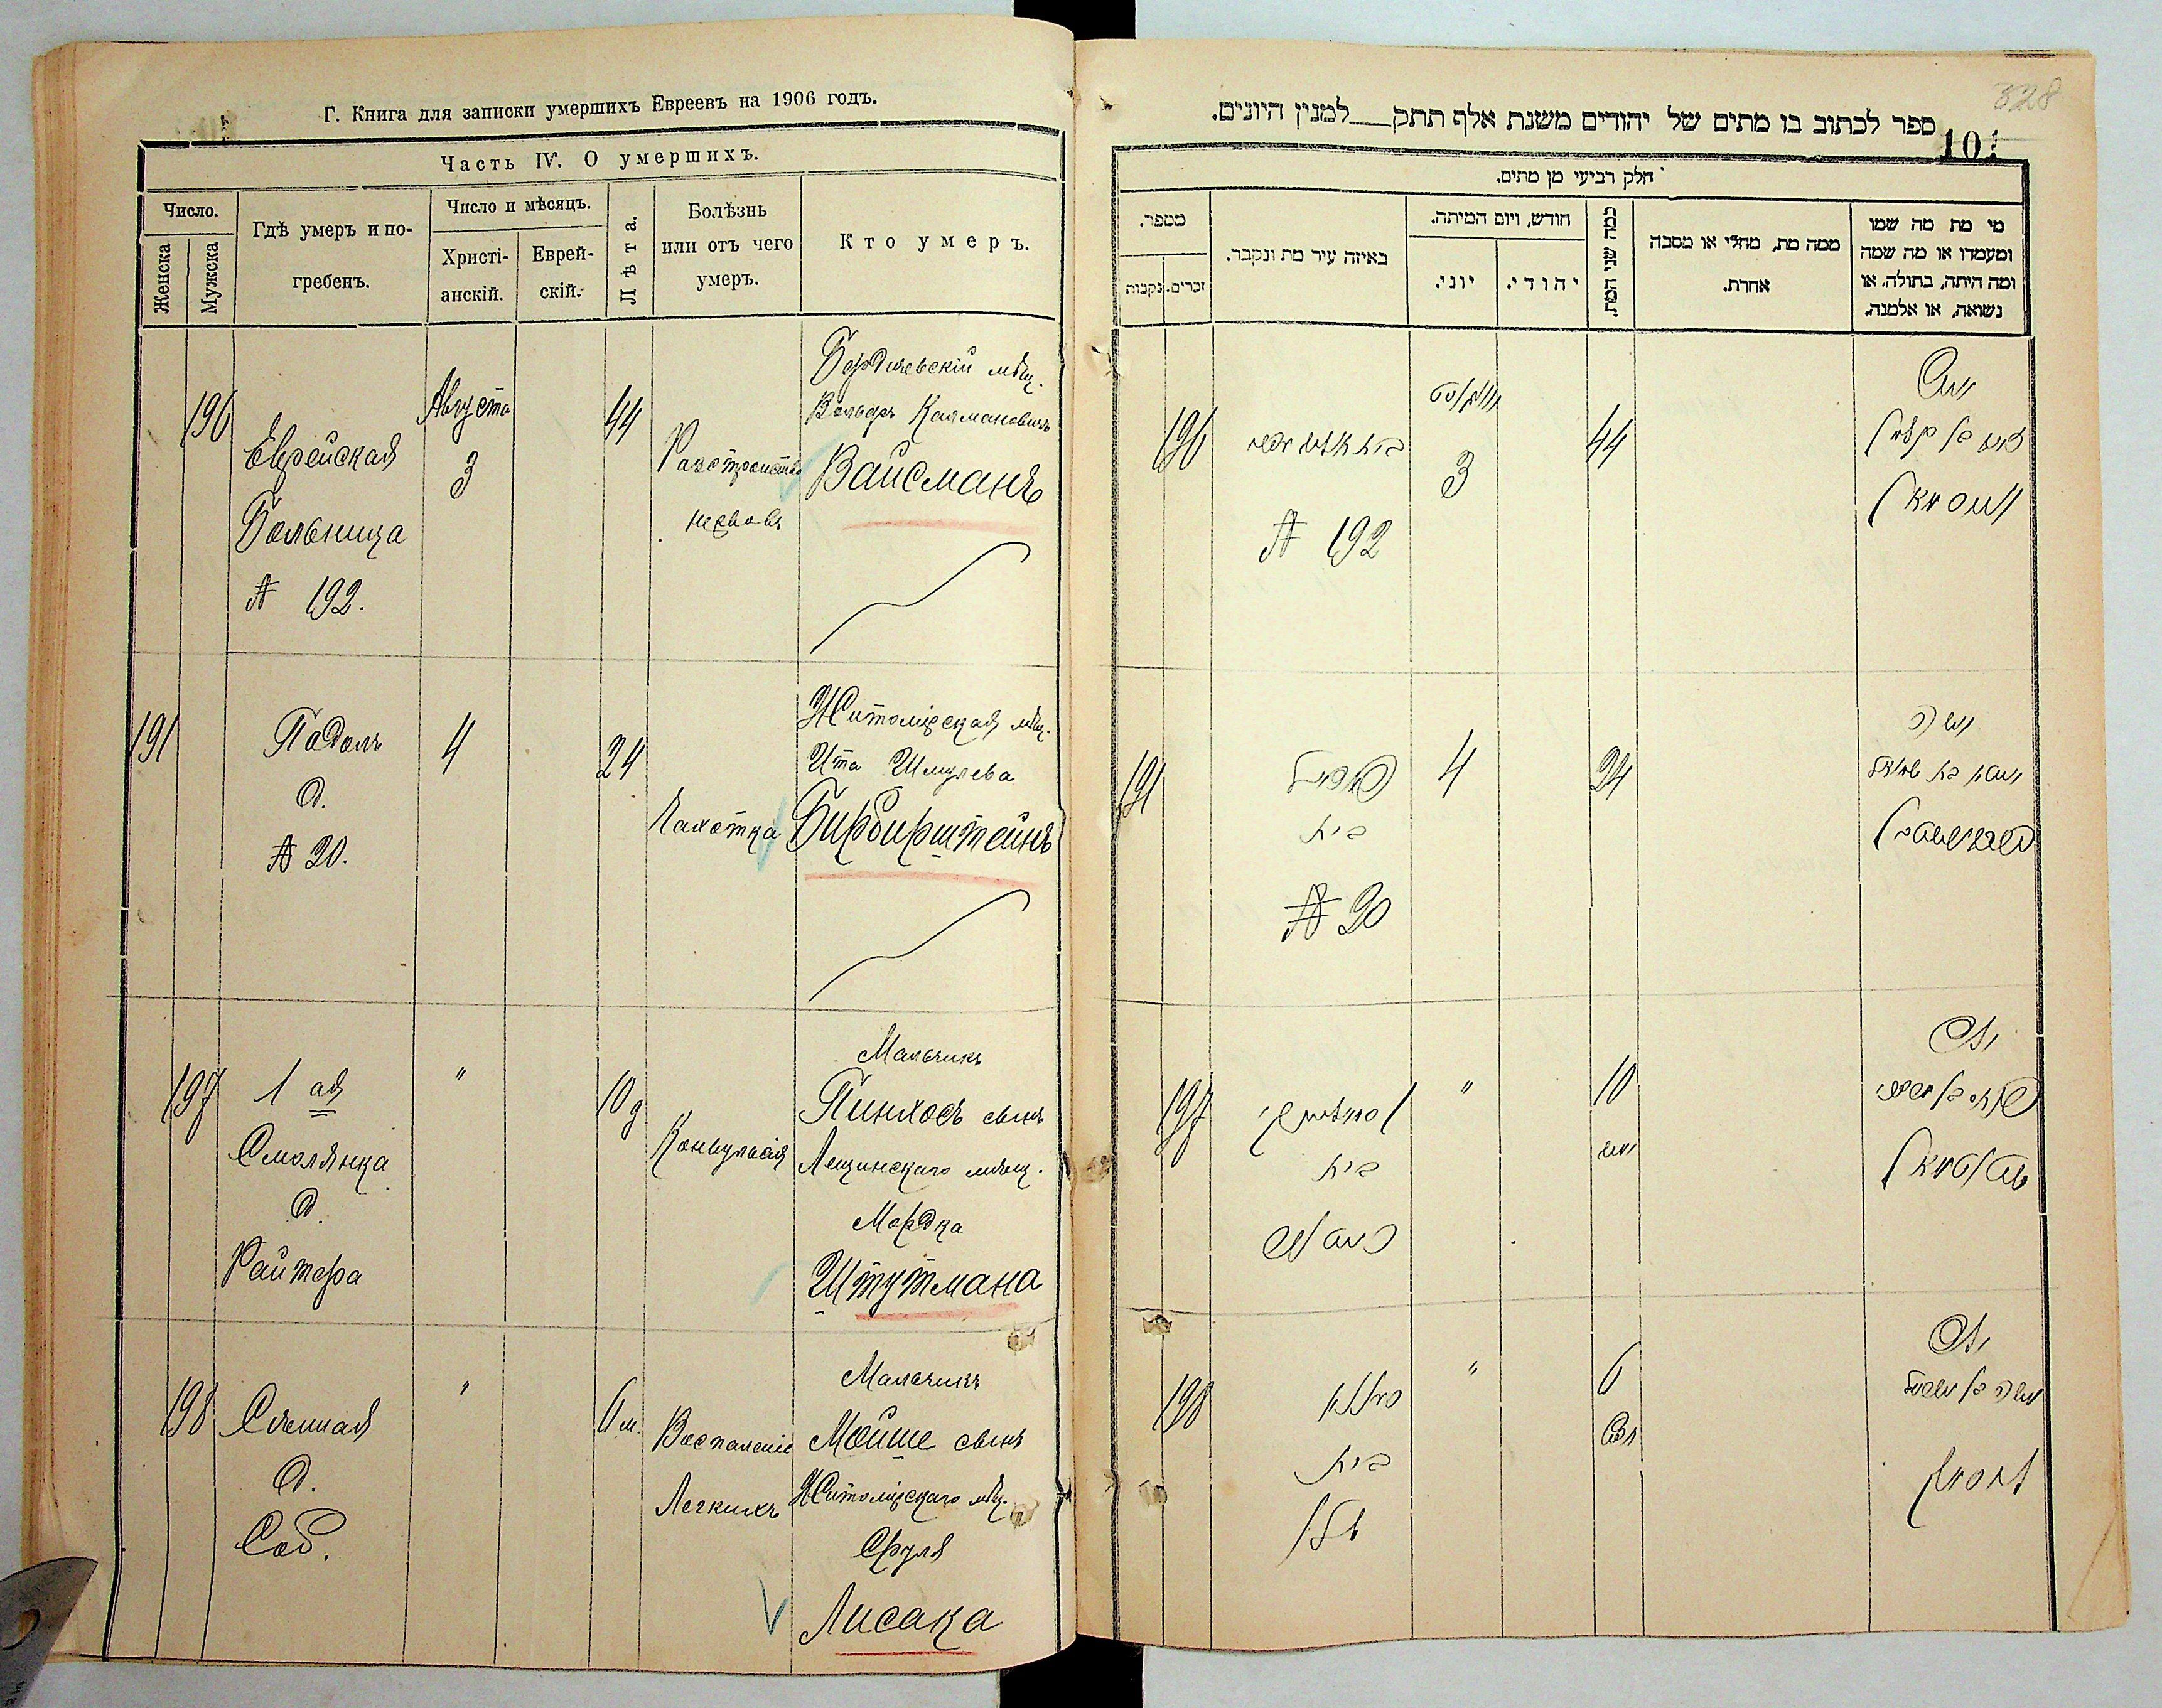 Г. Книга для записки умершихъ Евреевъ на 1906 годъ.
Часть IV. О умершихъ.
Число.
Женска
Мужска
Гдѣ умеръ и по-
гребенъ.
Число и мѣсяцъ.
Христі-
анскій.
Еврей-
скій.
Лѣта.
Болѣзнь
или отъ чего
умеръ.
Кто умеръ.
196
Еврейская
Больница
№ 192.
Августа
3
44
Разстройство
нервовъ
Бердичевскій мѣщ.
Вольфъ Калмановичъ
Вайсманъ
191
Подоль
д.
№ 20.
4
24
Чахотка
Житомірская мѣщ.
Ита Шмулева
Бирбирштейнъ
197
1 ая
Смолянка
д.
Райтера
"
10 д
Конвульсія
Мальчикъ
Пинхосъ сынъ
Лещинскаго мѣщ.
Мордка
Штутмана
198
Сѣнная
д.
Соб.
"
6 м.
Воспаленіе
Легкихъ
Мальчикъ
Мойше сынъ
Житомірскаго мѣщ.
Сруля
Лисака
328
ספר לכתוב בו מתים של יהודים משנת אלף תתק למנין היונים.
101
חלק רביעי מן מתים.
מספר.
נקבות
זכרים.
באיזה עיר מת ונקבר.
חודש, ויום המיתה.
יוני.
יהודי.
כמה שני המת.
ממה מת, מחלי או מסבה
אחרת.
מי מת מה שמו
ומעמדו או מה שמה
ומה היתה, בתולה, או
נשואה, או אלמנה.
196
№ 192
אוגוסט
3
44
איש
וואלף בן קלמן
ווייסמאן
191
פאדאל
בית
№ 20
4
24
אשה
197
בית
"
10
ילד
שטוטמאן
198
בית
"
6
חדש
ילד
ליסאק